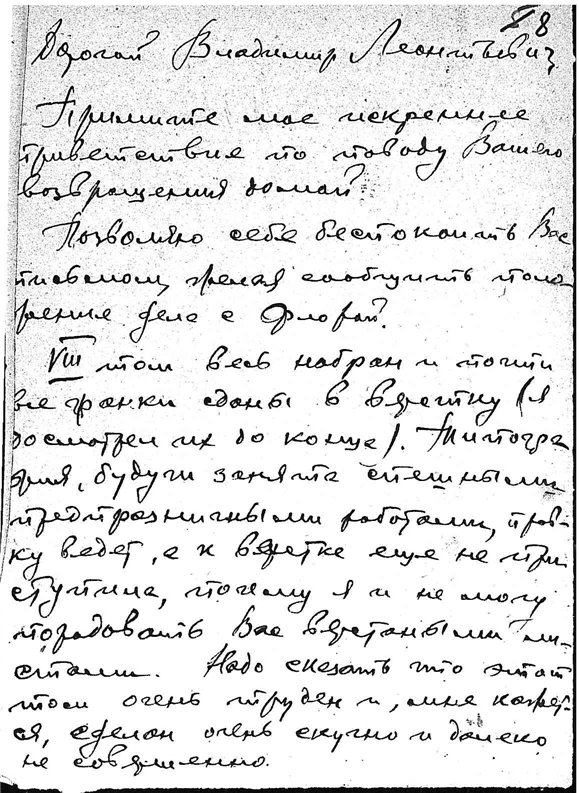 X 8
Дорогой Владимир Леонтьевич,
Примите мое искреннее
приветствие по поводу Вашего
возвращения домой.
Позволяю себе беспокоить Вас
письмом, желая сообщить поло-
жение дела с Флорой.
VIII том весь набран и почти
все гранки сданы в верстку (я
досмотрел их до конца). Типогра
фия, будучи занята спешными
предпраздничными работами, прав-
ку ведет, а к верстке еще не при
ступила, почему я и не могу
порадовать Вас верстаными ли-
стами. Надо сказать что этот
том очень труден и, мне кажет-
ся, сделан очень скучно и далеко
не совершенно.